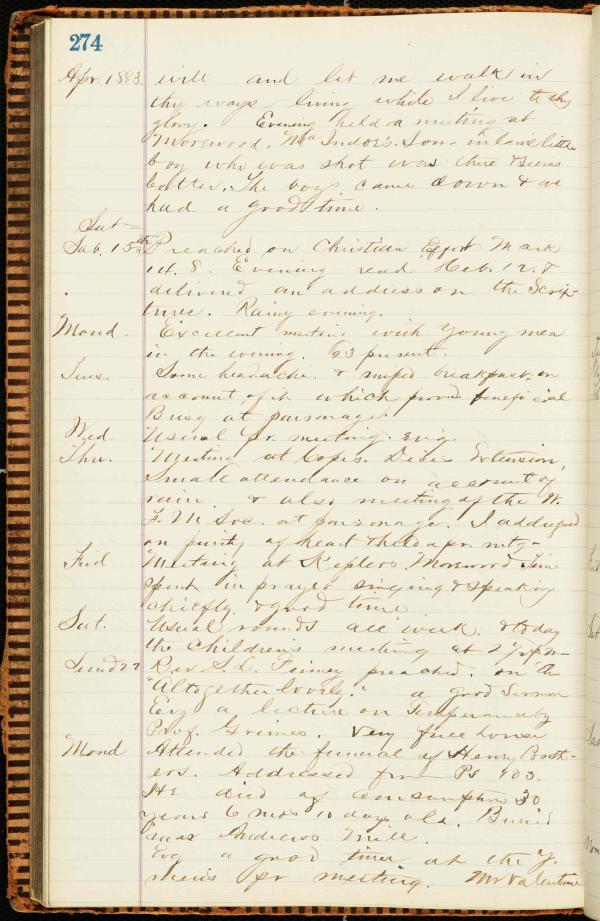 274
Apr. 1883. will and let me walk in
thy ways living while I live to thy
glory. Evening held a meeting at
Morewood. Son in laws little
boy who was shot was there & seems
better. The boys came down & we
had a good time.
Sat
Sab. 15th Preached on Christian Effort Mark
14. 8. Evening read Heb. 12. &
delivered an address on the Scrip-
tures. Rainy evening.
Mond. Excellent meeting with young men
in the evening. 23 present.
Tues. Some headache. & missed breakfast on
account of it which proved beneficial
Busy at parsonage.
Wed Usual pr. meeting. Evg.
Thu. Meeting at Extension,
Small attendance on account of
rain. & also meeting of the W.
F. M Soc. at parsonage. I addressed
on purity of heart & held a pr. mtg-
Frid Meeting at Keplers Morewood Time
spent in prayer singing & speaking
chiefly. & good time
Sat. Usual rounds all week. & today
the children's meeting at 2 1/2 pm-
Sund 22 Rev S. L. preached. on "the
"Altogether lovely." a good Sermon
Evg a lecture on Temperance by
Prof. Grimes. Very full house
Mond Attended the funeral of Henry Broth-
ers. Addressed from Ps 103.
He died of consumption 30
years 6 mos 10 days old. Buried
near Andrews Mill.
Evg a good time at the Y.
men's pr meeting. Mr Valentine